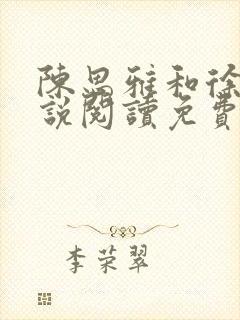 陳思雅和徐
說閱讀免費
李荣翠